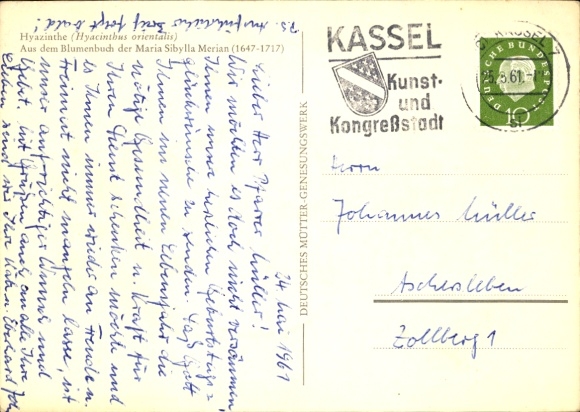 P.S. Ausführlicher Brief folgt bald!
Hyazinthe (Hyacinthus orientalis)
Aus dem Blumenbuch der Maria Sibylla Merian (1647-1717)
24. Mai 1961
Lieber Herr Pfarrer Müller!
Wir möchten es doch nicht versäumen,
Ihnen unsre herzlichen Geburtstags=
glückwünsche zu senden. Daß Gott
Ihnen im neuen Lebensjahr die
nötige Gesundheit u. Kraft für
Ihren Dienst schenken möchte und
es Ihnen immer wieder an Freude u.
nicht mangeln lasse, ist
unser aufrichtiger Wunsch und
Gebet. Mit Grüßen auch an alle Ihre
Lieben sind wir Ihre Eberhard
DEUTSCHES MÜTTER-GENESUNGSWERK
KASSEL
Kunst-
und
Kongreßstadt
61
DEUTSCHE BUNDESPOST
10
Herrn
Johannes Müller
Aschersleben
Zollberg 1